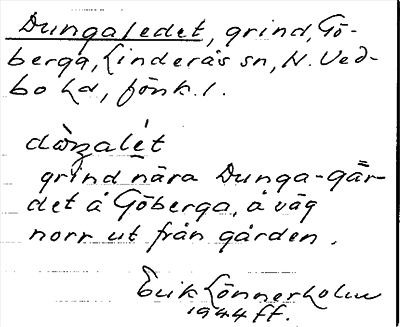 Dungaledet, grind, Gö-
berga, Linderås sn, N. Ved-
bo hd, Jönk. l.
dòŋalét
grind nära Dunga-går-
det å Göberga, å väg
norr ut från gården.
Erik Lönnerholm
1944 ff.